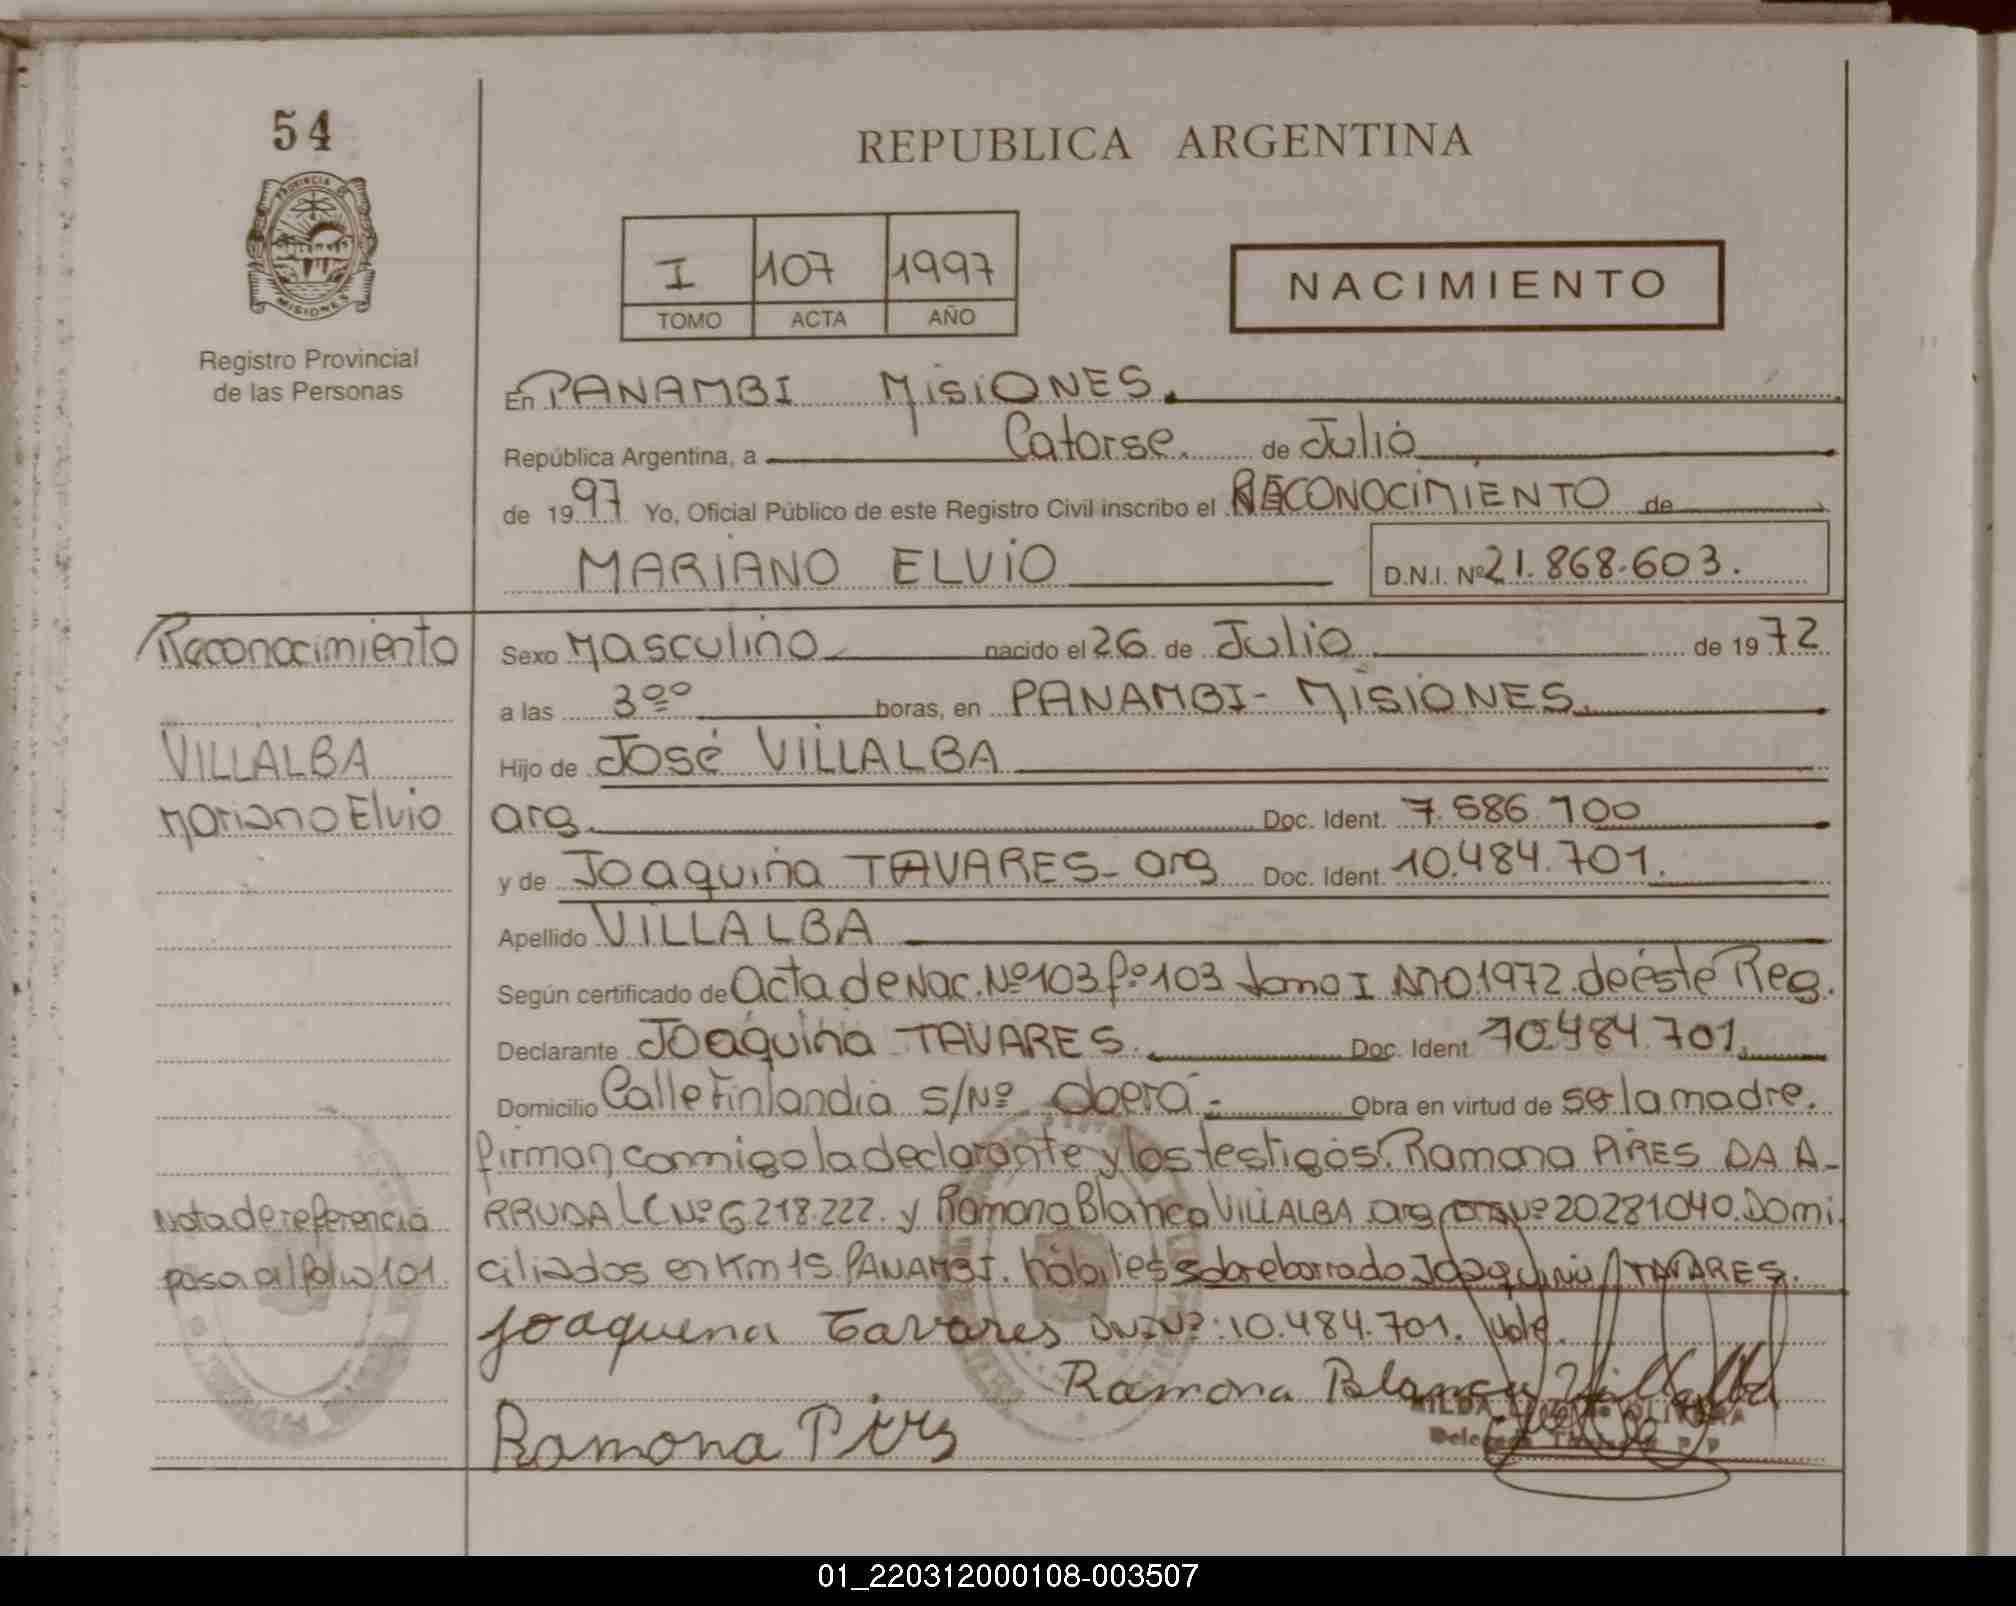 54
REPUBLICA ARGENTINA
PROVINCIA DE
MISIONES
I 107 1997
TOMO ACTA AÑO
NACIMIENTO
Registro Provincial
de las Personas
En PANAMBI MisiONES.
República Argentina, a Catorse. de Julio
de 1997 Yo, Oficial Público de este Registro Civil inscribo el RECONOCIMIENTO de
MARIANO ELVIO D.N.I. Nº 21.868.603.
Reconocimiento
VILLALBA
Mariano Elvio
Sexo Masculino nacido el 26 de Julio de 1972
a las 3ºº horas, en PANAMBI - MISIONES.
Hijo de José VILLALBA
arg. Doc. Ident. 7.586.700
y de Joaquina TAVARES - arg Doc. Ident. 10.484.701.
Apellido VILLALBA
Según certificado de Acta de Nac. Nº 103 fº 103 tomo I AÑO 1972 de éste Reg.
Declarante Joaquina TAVARES. Doc. Ident 10.484.701.
Domicilio Calle Finlandia s/Nº Oberá - Obra en virtud de ser la madre.
firman conmigo la declarante y los testigos: Ramona PIRES DA A-
RRUDA LC Nº 6.218.222. y Ramona Blanca VILLALBA arg Nº 20281.040. Domi
ciliados en Km 15 PANAMBI. hábiles sobreborrado Joaquina TAVARES.
Nota de referencia
pasa al folio 101
Joaquena Tavares DNI Nº: 10.484.701. Vale.
Ramona Blanca Villalba
Ramona Pires
01_220312000108-003507